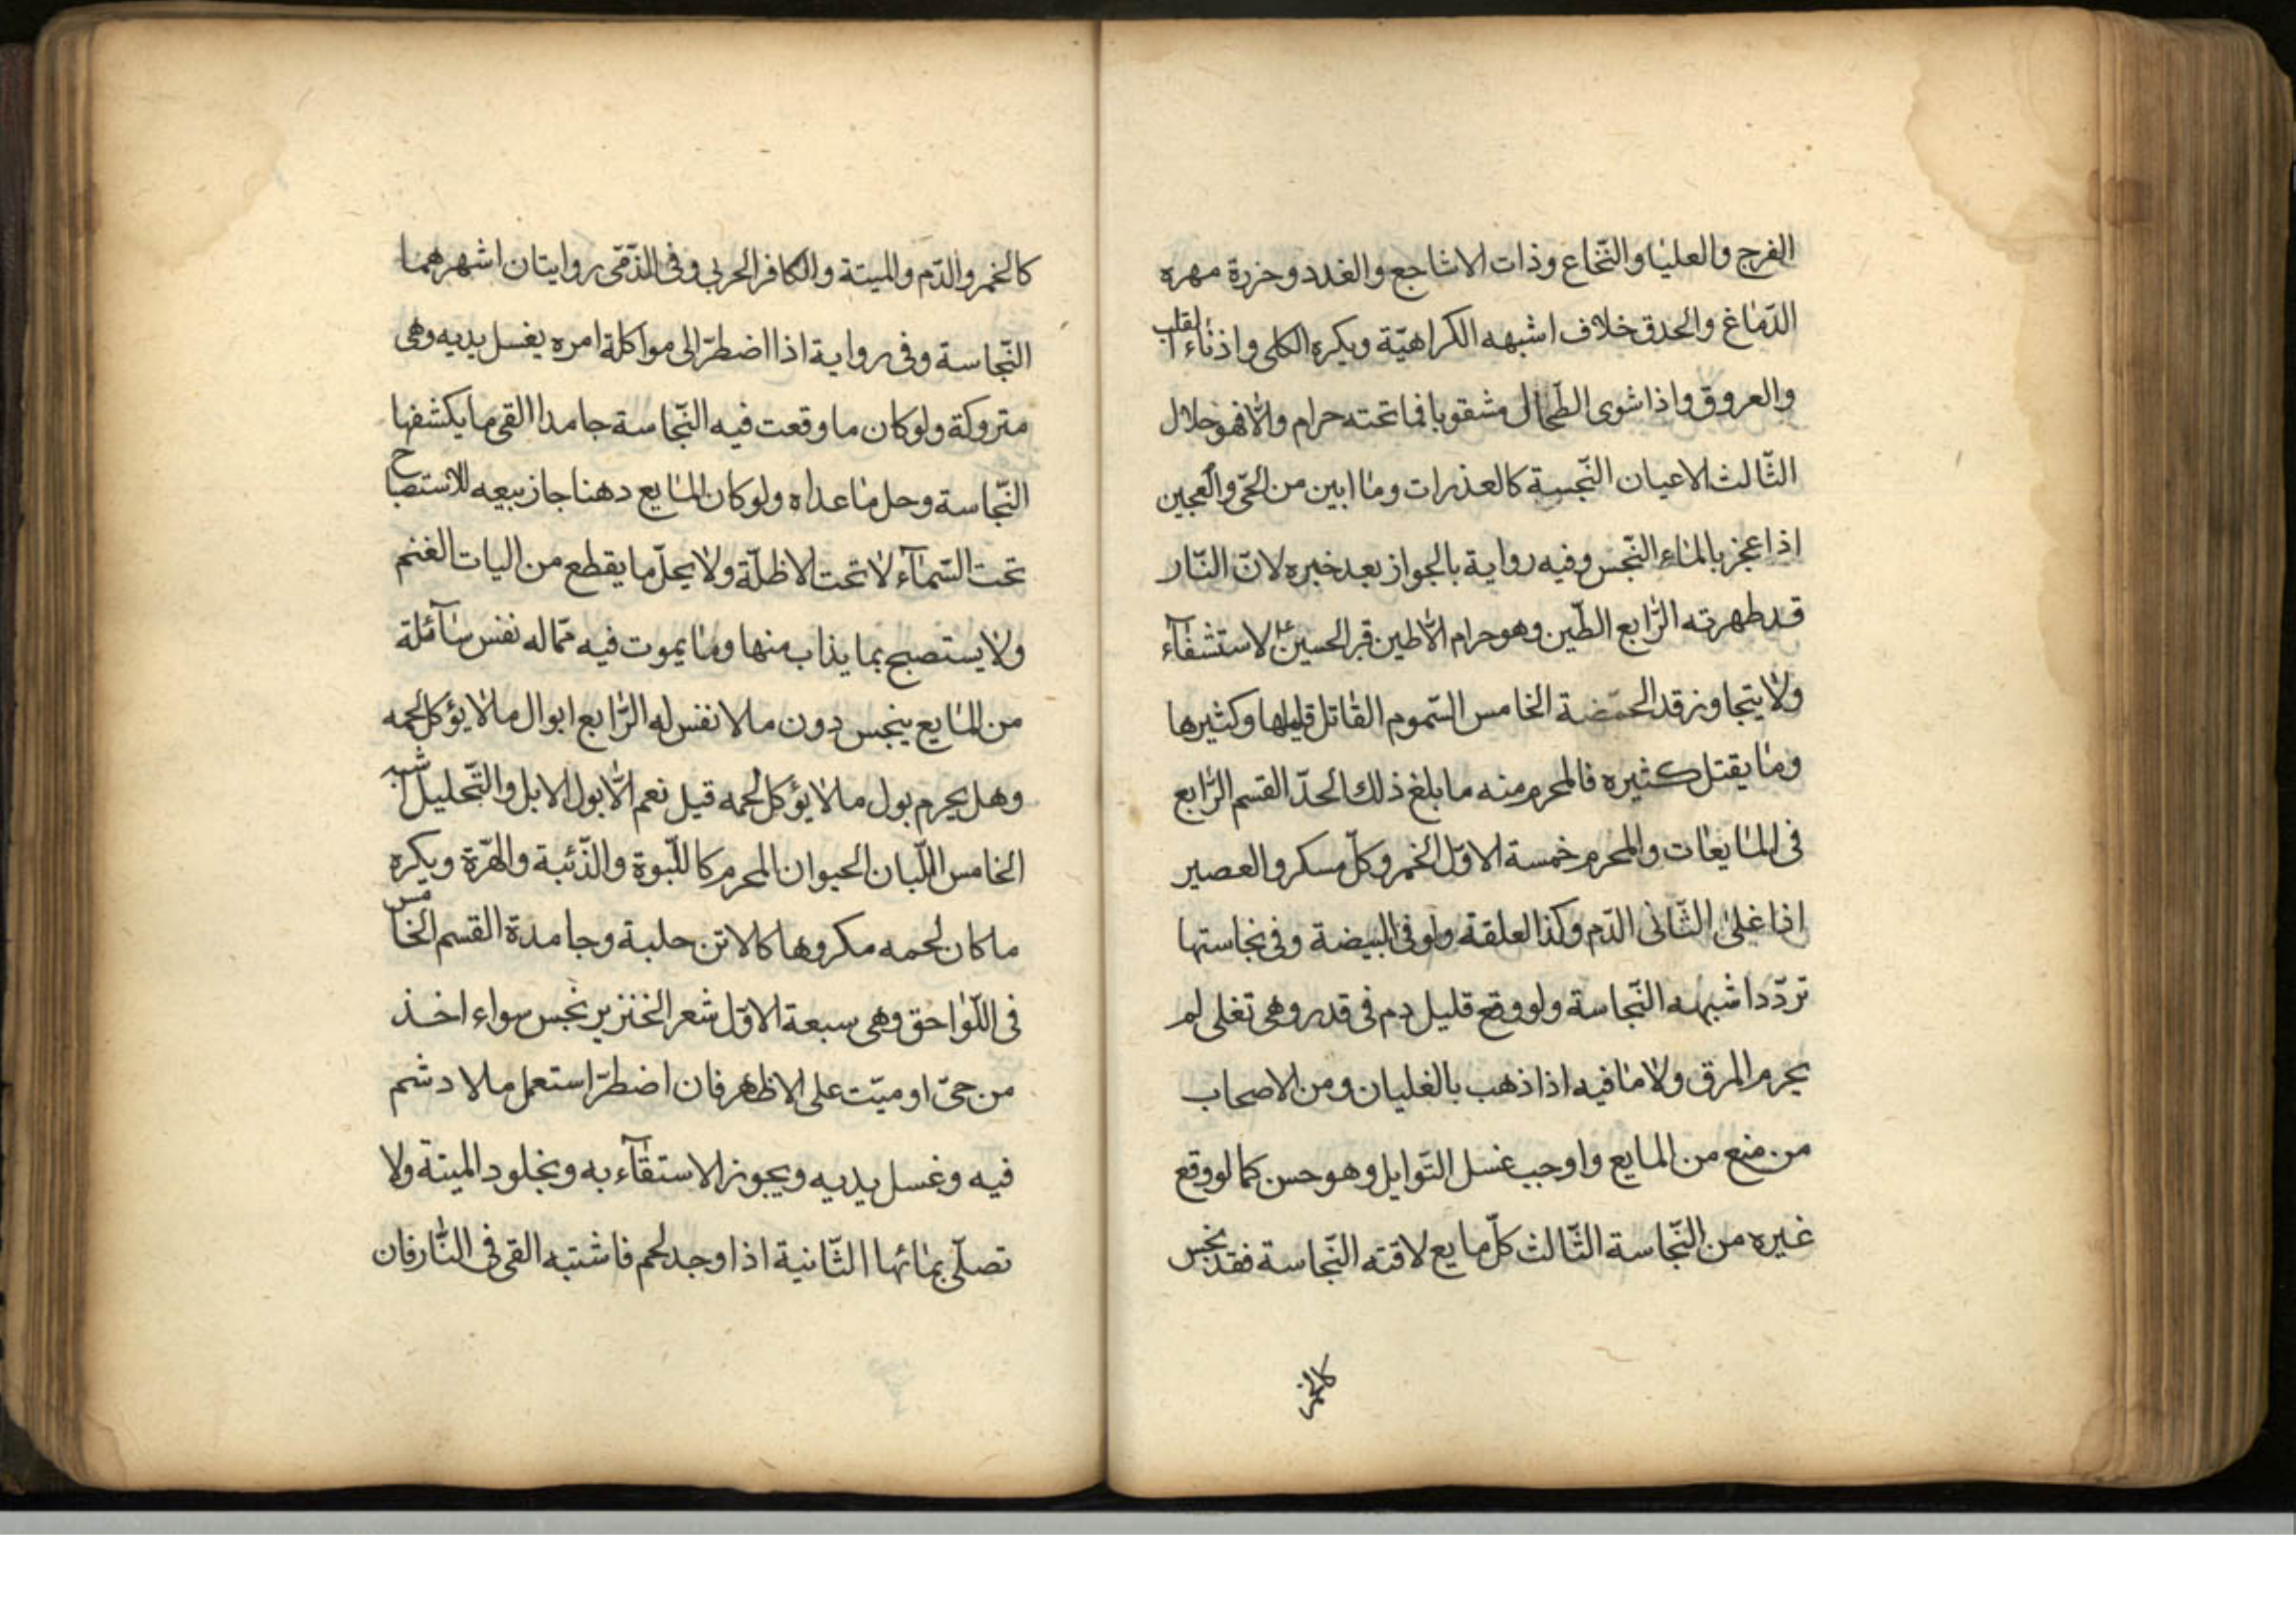 الفرج والعلياو والنّخاع وذات الاشاجع والغدد وخرزة مهره
الدّماغ والحدق خلاف اشبهه الكراهيّة ويكره الكلى واذناء القلب
والعروق واذا شوى الطحال مثقوبا فما تحته حرام والّا فهو حلال
الثّالث الاعيان النّجسة كالعذرات وما ابين من الحىّ والعجين
اذا عجن بالماء النّجس وفيه رواية بالجواز بعد خبره لانّ النّار
قد طهرته الرّابع الطّين وهو حرام الّا طين قبر الحسين ع لاستشفآء
ولا يتجاوز قدر الحمّضة الخامس السّموم القاتل قليلها وكثيرها
وما يقتل كثيره فالمحرم منه ما بلغ ذلك الحدّ القسم الرّابع
فى المايعات والمحرم خمسة الاوّل الخمر وكلّ مسكر والعصير
اذا غلى الثّانى الدّم وكذا العلقة ولو فى البيضة وفى نجاستها
تردّد اشبهه النّجاسة ولو وقع قليل دم فى قدر وهى تغلى لم
يحرم المرق ولا ما فيه اذا ذهب بالغليان ومن الاصحاب
من منع من المايع واوجب غسل التّوابل وهو حسن كما لو وقع
غيره من النّجاسة الثّالث كلّ مايع لاقته النّجاسة فقد نجس
كالخمر
كالخمر والدّم والميتة والكافر الحربي وفى الذّمّى روايتان اشهرهما
النّجاسة وفى رواية اذا اضطرّ الى مواكلة امره يغسل يديه وهى
متروكة ولو كان ما وقعت فيه النّجاسة جامدا القى ما يكشفها
النّجاسة وحل ما عداه ولو كان المايع دهنا جاز بيعه للاستصباح
تحت السّمآء لا تحت الاظلّة ولا يحلّ ما يقطع من اليات الغنم
ولا يستصبح بما يذاب منها وما يموت فيه ممّا له نفس سآئلة
من المايع ينجس دون ما لا نفس له الرّابع ابوال ما لا يؤكل لحمه
وهل يحرم بول ما لا يؤكل لحمه قيل نعم الّا بول الابل والتّحليل اشبه
الخامس اللّبان الحيوان المحرم كاللّبوة والذّئبة والهرّة ويكره
ما كان لحمه مكروها كالاتن حلبة وجامدة القسم الخامس
فى اللّواحق وهى سبعة الاوّل شعر الخنزير نجس سواء اخذ
من حىّ او ميّت على الاظهر فان اضطرّ استعمل ما لا دشم
فيه وغسل يديه ويجوز الاستقآء به وبخلود الميتة ولا
تصلّى بمائها الثّانية اذا وجد لحم فاشتبه القى فى النّار فان